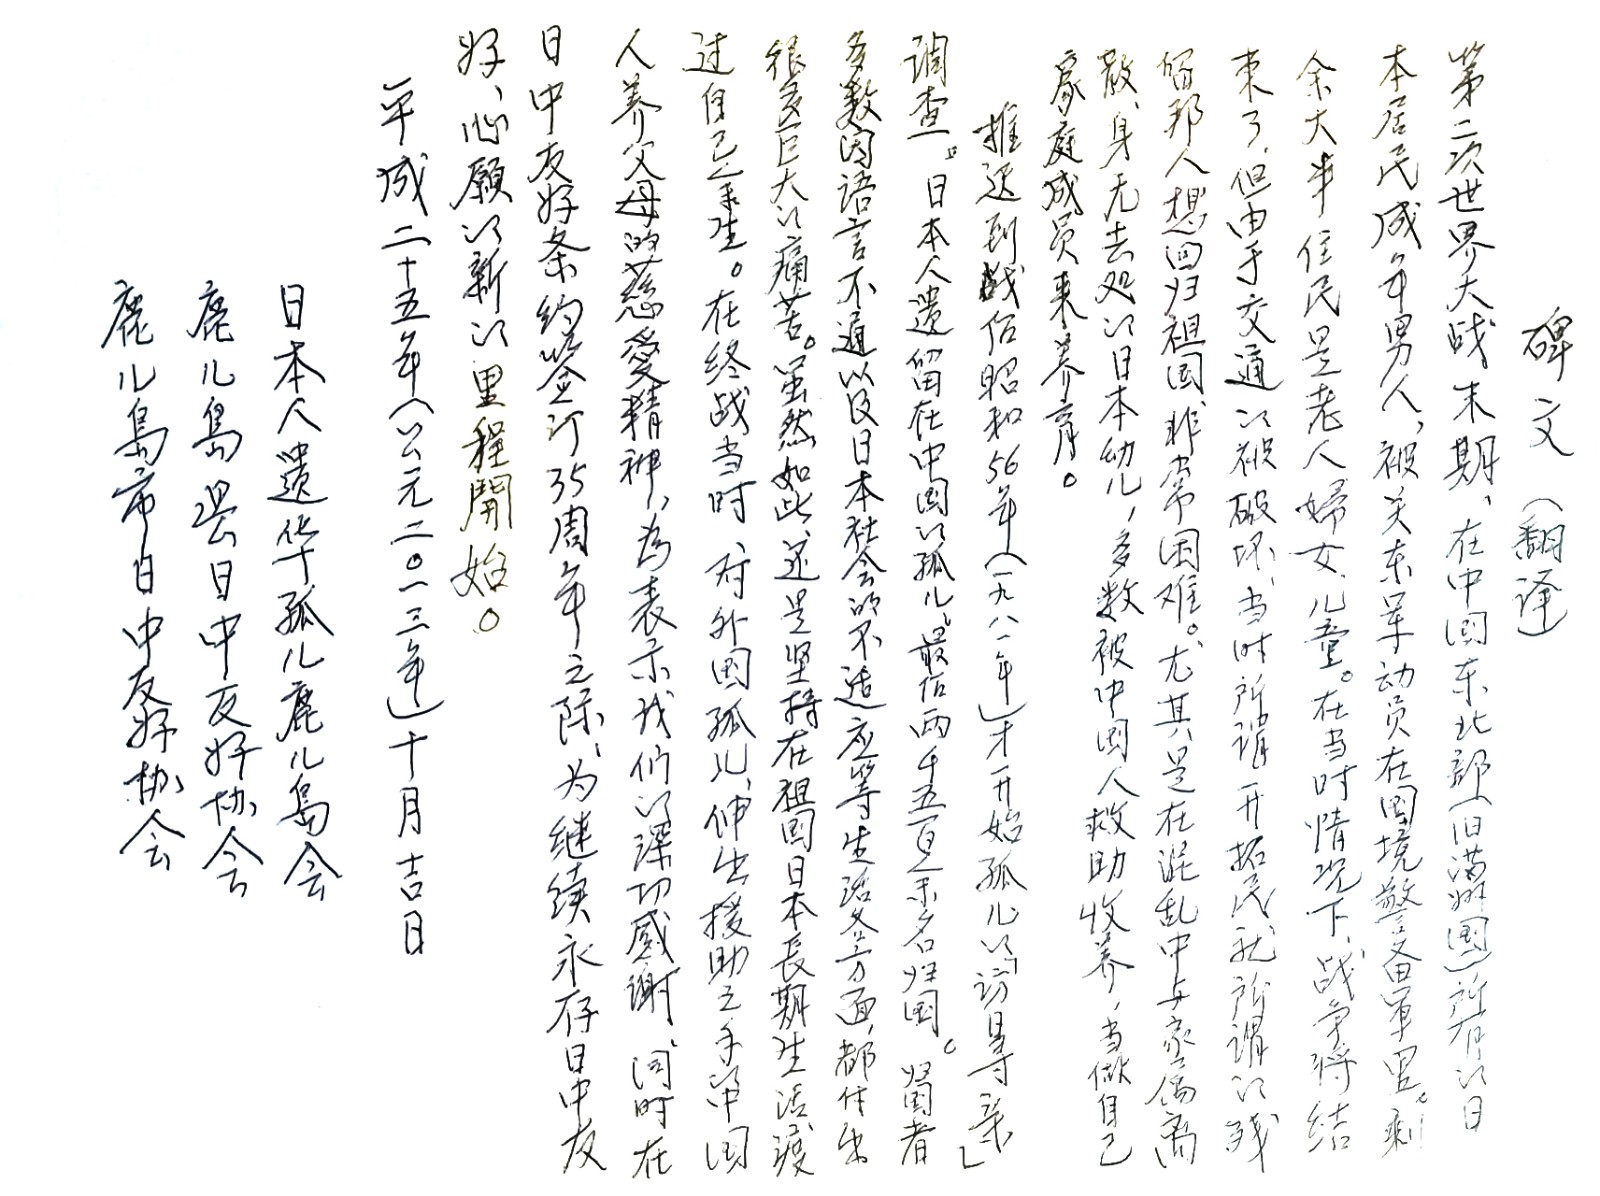 碑文（翻译）
第二次世界大战末期、在中国东北部（旧满州国）所有以日
本居民成年男人，被关东军动员在国境警备军里。剩
余大半住民是老人婦女、儿童。在当时情况下、战争将结
束了，但由于交通以被破坏、当时所谓开拓民就所谓以残
留邦人想回归祖国、非常困难。尤其是在混乱中与家属离
散、身无去处以日本幼儿，多数被中国人救助收养，当做自己
家庭成员来养育。
推迟到战后昭和56年（一九八一年）才开始孤儿以「访日寻亲」
调查。日本人遗留在中国以孤儿。最后两千五百余名归国。归国者
多数因语言不通以及日本社会的不适应等生活各方面，都付出
很多巨大以痛苦。虽然如此、还是坚持在祖国日本長期生活、渡
过自己人生。在终战当时、对外国孤儿、伸出援助之手以中国
人养父母的慈愛精神，为表示我们以深切感谢、同时在
日中友好条约签订35周年之际、为继续永存日中友
好、心願以新以里程開始。
平成二十五年（公元二〇一三年）十月吉日
日本人遗华孤儿鹿儿島会
鹿儿島県日中友好协会
鹿儿島市日中友好协会